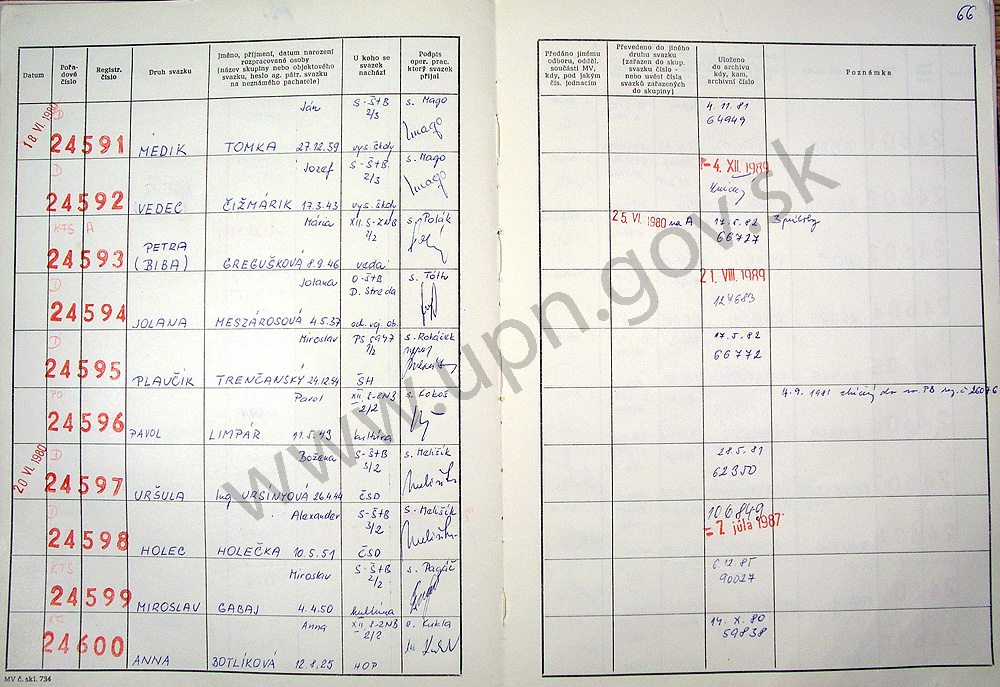 66
Datum
Pořa-
dové
číslo
Registr.
číslo
Druh svazku
Jméno, příjmení, datum narození
rozpracované osoby
(název skupiny nebo objektového
svazku, heslo ag. pátr. svazku
na neznámého pachatele)
U koho se
svazek
nachází
Podpis
oper. prac.
který svazek
přijal
Předáno jinému
odboru, odděl.
součásti MV,
kdy, pod jakým
čís. jednacím
Převedeno do jiného
druhu svazku
(zařazen do skup.
svazku číslo -
nebo uvést čísla
svazků zařazených
do skupiny)
Uloženo
do archivu
kdy, kam,
archivní číslo
Poznámka
18 VI. 1980
D
24591
MEDIK
Ján
TOMKA 27.12.59
S-ŠtB
2/3
vys. školy
s. Mago
4.11.81
64949
D
24592
VEDEC
Jozef
ČIŽMÁRIK 17.3.43
S-ŠtB
2/3
vys. škol
s. Mago
- 4. XII. 1989
KTS A
24593
PETRA
(BIBA)
Mária
GREGUŠKOVÁ 8.9.46
XII. S-ZNB
2/2
veda
s. Polák
25. VI. 1980 na A
17.5.82
66727
D
24594
JOLANA
Jolana
MESZÁROSOVÁ 4.5.37
O-ŠtB
D. Streda
s. Tóth
21. VIII. 1989
124683
D
24595
PLAVČIK
Miroslav
TRENČANSKÝ 24.12.54
1/2
ŠH
s. Roháček
17.5.82
66772
PO
24596
PAVOL
Pavol
LIMPÁR 11.5.43
XII. S-ZNB
2/2
kultúra
s. Kokoš
4.9. 1981
20 VI. 1980
D
24597
URŠULA
Božena
Ing URSINYOVÁ 26.4.44
S-ŠtB
3/2
ČSD
s. Melišík
28.5.81
62350
D
24598
HOLEC
Alexander
HOLEČKA 10.5.51
S-ŠtB
3/2
ČSD
s. Melišík
106849
= 2 júla 1987
KTS
24599
MIROSLAV
Miroslav
GABAJ 4.4.50
S-ŠtB
2/2
kultúra
s. Pagáč
6.12.85
90027
KTS
24600
ANNA
Anna
BOTLÍKOVÁ 12.8.25
XII S-ZNB
2/2
HOP
s. Kukla
14. X. 80
59838
MV č. skl. 734
www.upn.gov.sk